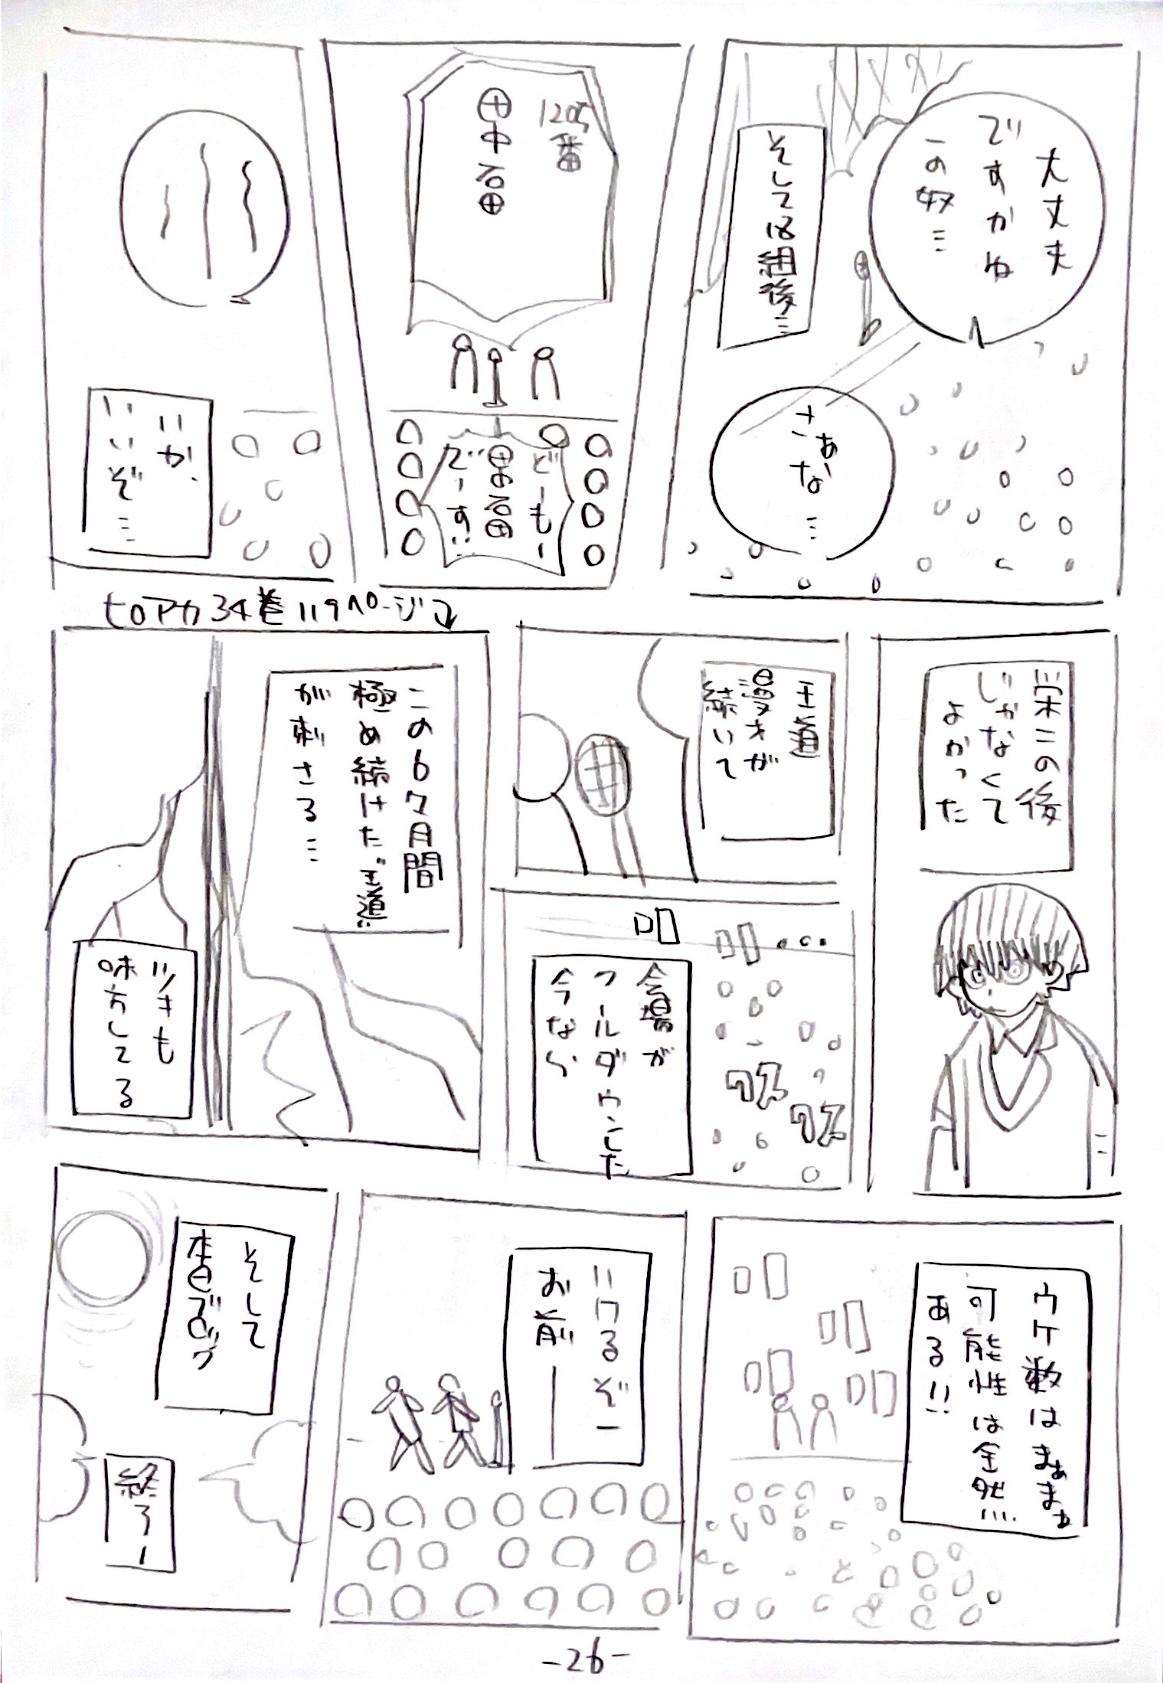 大丈夫
ですかね
この奴…
そして18組後…
さぁな…
1205番
田中石田
どーもー
田中石田
でーす!!
いいか、
いいぞ…
栄この後
じゃなくて
よかった
王道
漫才が
続いて
会場が
クールダウンした
今なら
クス
クス
ヒロアカ34巻119ページ↴
この6ヶ月間
極め続けた"王道"
が刺さる…
ツキも
味方してる
ウケ数はまぁまぁ
可能性は全然…
ある!!
いけるぞー
お前——
そして
終了ー
-26-